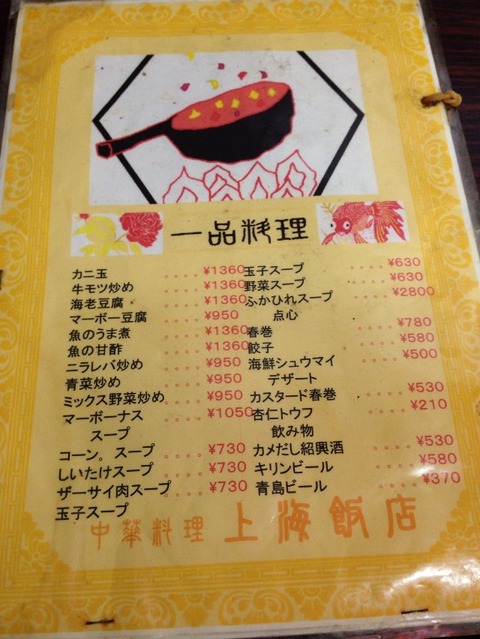 一品料理
カニ玉 ..... ¥1360
牛モツ炒め ..... ¥1360
海老豆腐 ..... ¥1360
マーボー豆腐 ..... ¥950
魚のうま煮 ..... ¥1360
魚の甘酢 ..... ¥1360
ニラレバ炒め ..... ¥950
青菜炒め ..... ¥950
ミックス野菜炒め ..... ¥950
マーボーナス ..... ¥1050
スープ
コーン。スープ ..... ¥730
しいたけスープ ..... ¥730
ザーサイ肉スープ ..... ¥730
玉子スープ
玉子スープ ..... ¥630
野菜スープ ..... ¥630
ふかひれスープ ..... ¥2800
点心
春巻 ..... ¥780
餃子 ..... ¥580
海鮮シュウマイ ..... ¥500
デザート
カスタード春巻 ..... ¥530
杏仁トウフ ..... ¥210
飲み物
カメだし紹興酒 ..... ¥530
キリンビール ..... ¥580
青島ビール ..... ¥370
中華料理 上海飯店